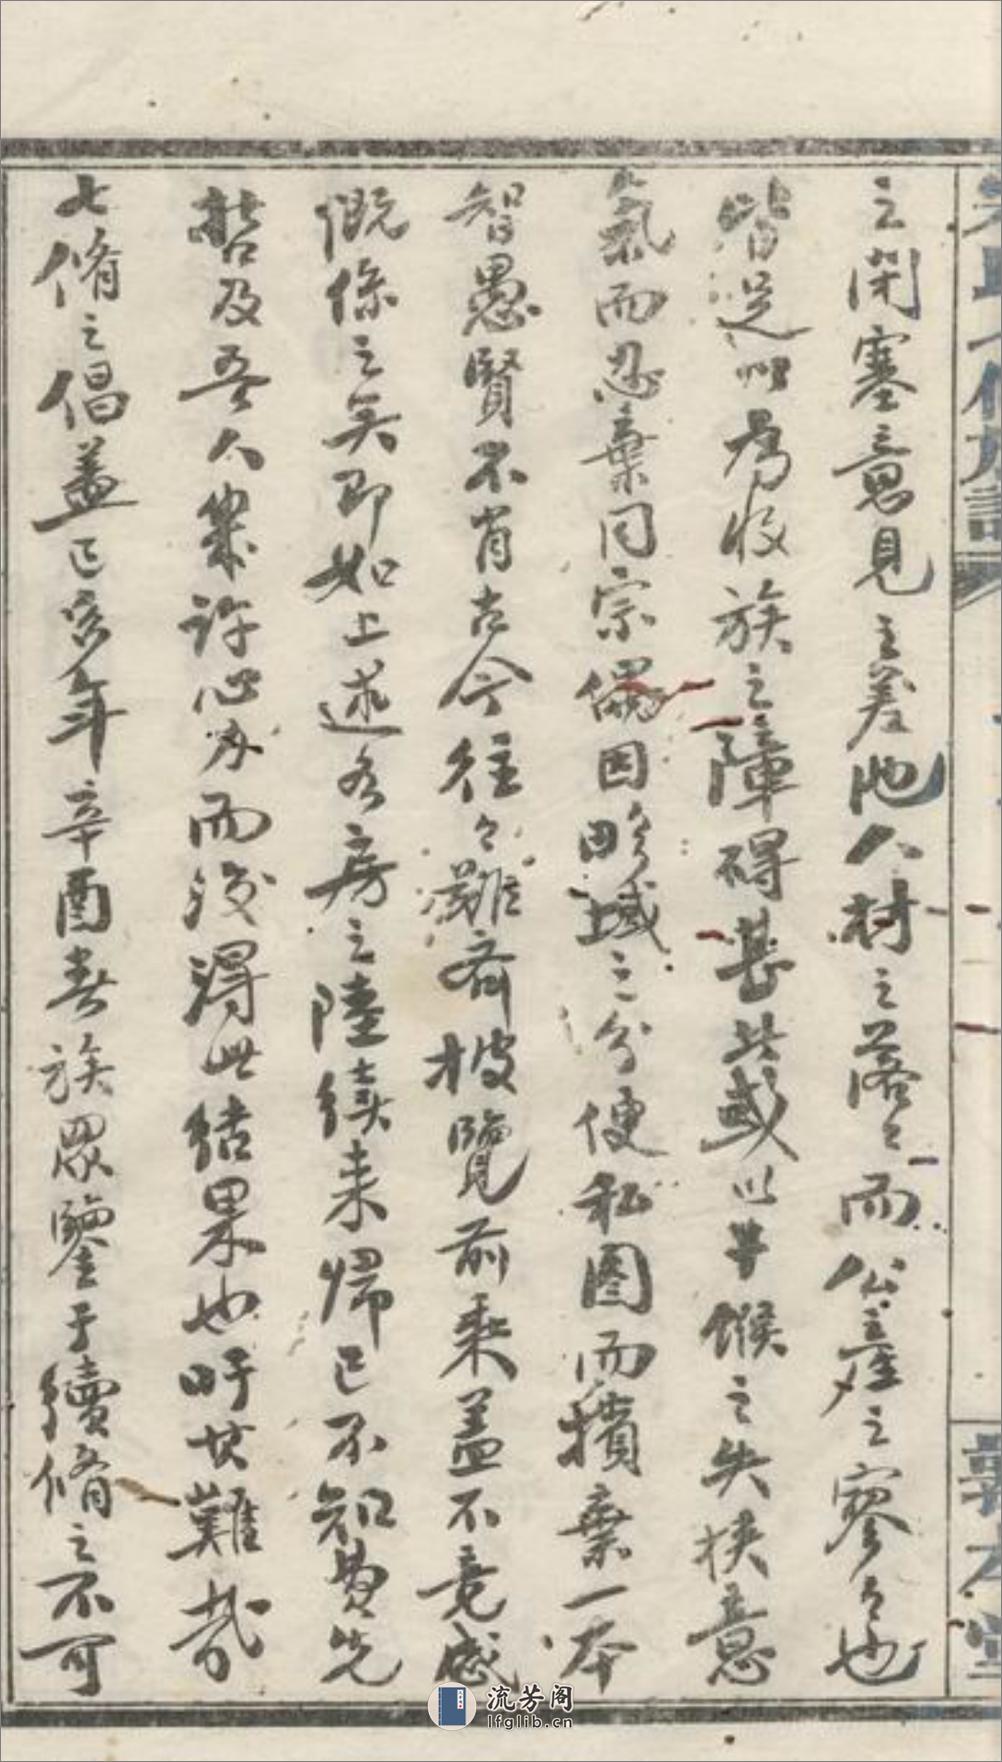 之閉塞意見之差池人材之落々而公產之寥々也
皆足以為收族之障碍甚些或以等餱之失挾意
氣而忍棄同宗儩因畛域之分便私圖而擯棄一本
智愚賢不肖古今往々難齊披覽前乘蓋不竟感
慨係之矣即如上述各房之陸續來歸已不知費先
哲及吾人幾許心力而後得此結果也吁其難哉
七脩之倡蓋已亥年辛酉春族眾鑒于續脩之不可
敦本堂
流芳阁
lfglib.cn